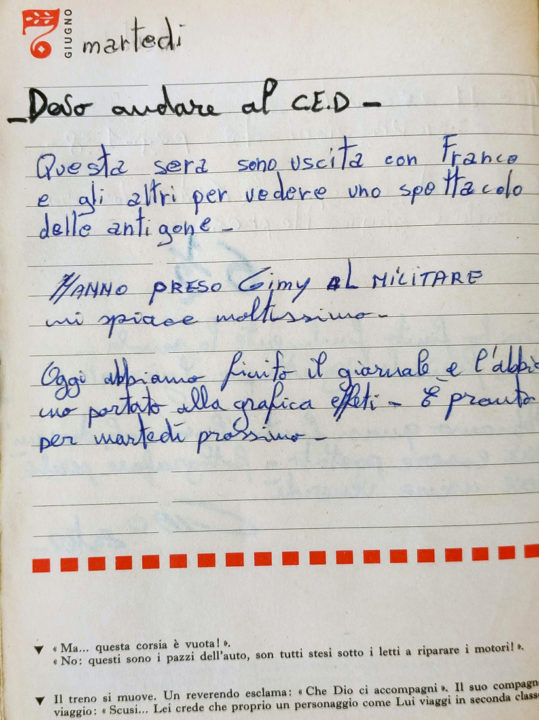 GIUGNO
martedì
- Devo andare al C.E.D -
Questa sera sono uscita con Franco
e gli altri per vedere uno spettacolo
delle antigone -
HANNO PRESO Gimy AL MILITARE
mi spiace moltissimo -
Oggi abbiamo finito il giornale e l'abbia
mo portato alla grafica effeti - È pronto
per martedì prossimo -
▼ « Ma... questa corsia è vuota! ».
« No: questi sono i pazzi dell'auto, son tutti stesi sotto i letti a riparare i motori! ».
▼ Il treno si muove. Un reverendo esclama: « Che Dio ci accompagni ». Il suo compagn
viaggio: « Scusi... Lei crede che proprio un personaggio come Lui viaggi in seconda class